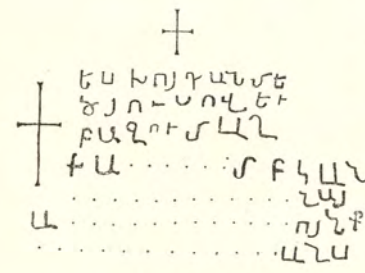 ԵՍ ԽՈՅԴԱՆ ՄԵ
Ծ ՅՈՒՍՈՎ ԵՒ
ԲԱԶՈՒՄ ԱՂ
ԹԱ . . . . . . . ՄԲԿԱՆ
. . . . . . . . . . . . ՆԱՅ
Ա . . . . . . . . . . . ՈՅՆՔ
. . . . . . . . . . . . ԱՆԱ